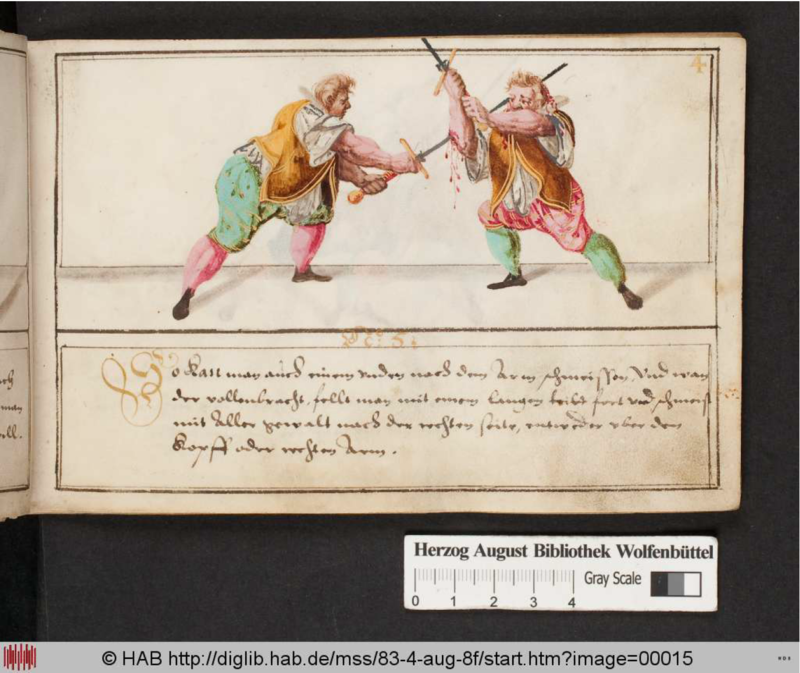 4
No. 5.
So kan man auch einem unden nach dem Arm schmeissen, Und wan
der vollenbracht, fellt man mit einem langen leibe fort und schmeist
mit Aller gewalt nach der rechten seite, entweder uber den
Kopff oder rechten Arm.
man
ell.
Herzog August Bibliothek Wolfenbüttel
Gray Scale
0 1 2 3 4
© HAB http://diglib.hab.de/mss/83-4-aug-8f/start.htm?image=00015